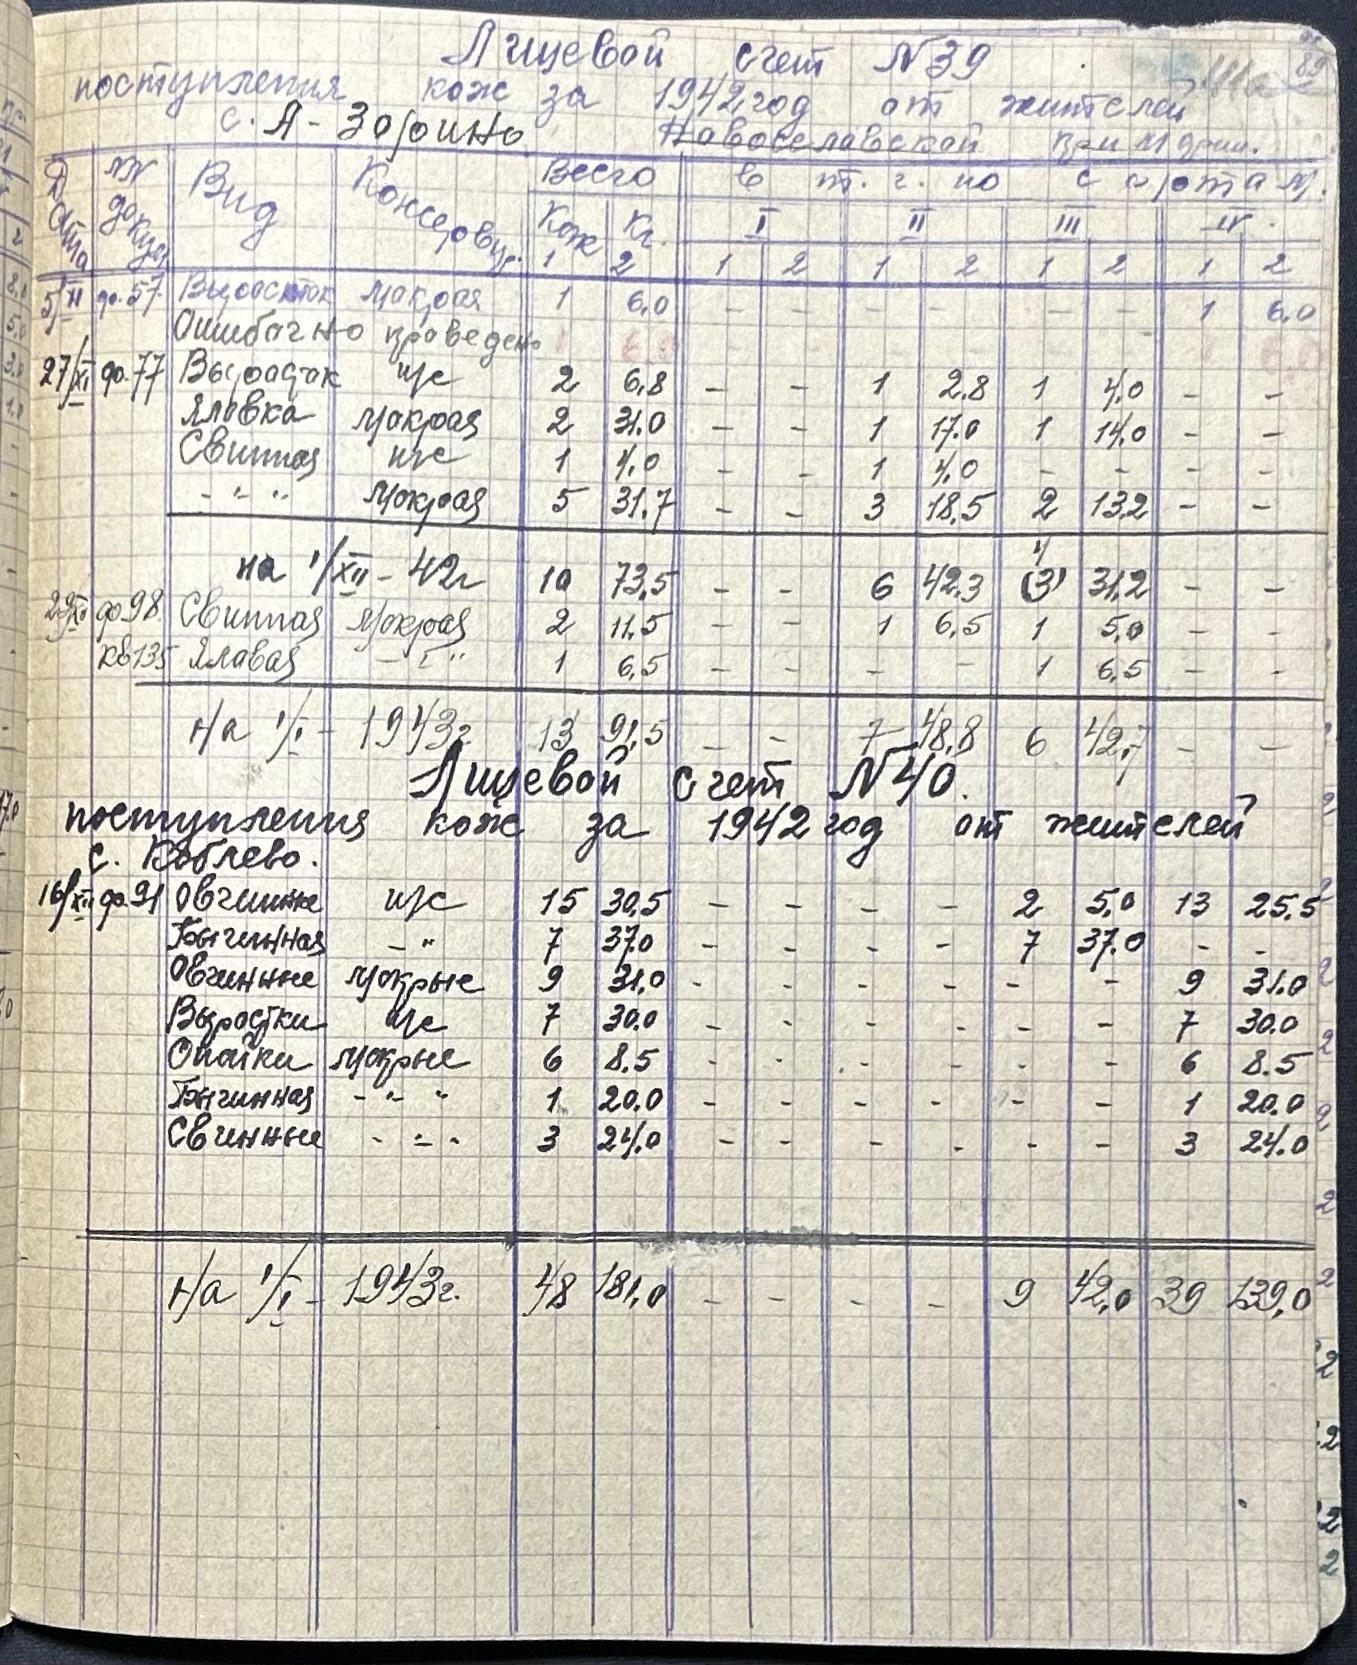 Лицевой счет N39
поступления кож за 1942 год от жителей
с. А-Зорино Новоселавской
Дата NN докум Вид Консервир. Всего в т. ч. по сортам.
Кож Кг. I II III IV
1 2 1 2 1 2 1 2 1 2
5/XI до.57 Выросток мокрая 1 6,0 - - - - - - 1 6.0
Ошибочно проведено 1 6.0
27/XI фо.77 Выросток п/с 2 6,8 - - 1 2.8 1 4,0 - -
Яловка мокрая 2 31.0 - - 1 17.0 1 14,0 - -
Свинная п/с 1 4.0 - - 1 4,0 - - - -
- " - " мокрая 5 31.7 - - 3 18.5 2 13.2 - -
на 1/XII - 42г 10 73,5 - - 6 42.3 4 (3) 31,2 - -
29/XII фо 98. Свинная мокрая 2 11.5 - - 1 6,5 1 5,0 - -
кв135 Яловая - " - " 1 6,5 - - - - 1 6,5 - -
На 1/I - 1943г 13 91,5 - - 7 48,8 6 42,7 - -
Лицевой счет N40.
поступления кож за 1942 год от жителей
с. Коблево.
16/XII фо.91 Овчинные п/с 15 30,5 - - - - 2 5,0 13 25.5
Бычинная - " 7 37.0 - - - - 7 37.0 - -
Овчинные мокрые 9 31.0 - - - - - - 9 31.0
Выростки п/с 7 30.0 - - - - - - 7 30.0
Опойки мокрые 6 8.5 - - - - - - 6 8.5
Бычинная - " - " 1 20.0 - - - - - - 1 20.0
Свинные - " - 3 24.0 - - - - - - 3 24.0
На 1/I - 1943г. 48 181,0 - - - - 9 42,0 39 139,0